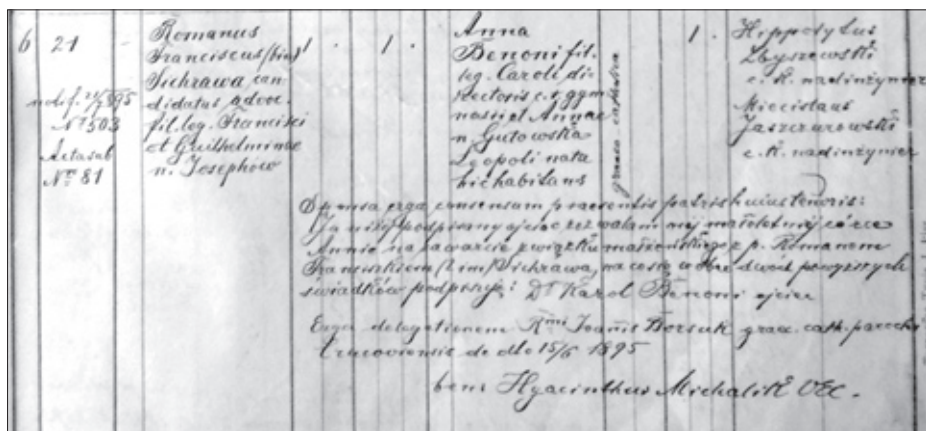 6 21 - Romanus
Franciscus (bin)
Sichrawa can-
didatus advoc.
fil. leg. Francisci
et Guilhelminae
n. Josephów
notif. 95
Nº 503
Acta sub
Nrº 81
1. 1.
Anna
Benoni fil.
leg. Caroli di-
rectoris c. r. gym-
nasii et Annae
n. Gutowska
Leopoli nata
hic habitans
graeco catholica
1. Hippolytus
Zbyszewski
c. k. nadinżynier
Miecislaus
Jaszczurowski
c. k. nadinżynier
Sponsa erga consensum praesentis patris huius tenoris:
Ja niżej podpisany ojciec zezwalam mej małoletniej córce
Annie na zawarcie związku małżeńskiego z p. Romanem
Franciszkiem (2 im) Sichrawa, na co się w obec dwóch powyższych
świadków podpisuję: Dr Karol Benoni ojciec
Erga delegationem Rmi Joannis Borsuk graec. cath. parochi
Cracoviensis de dto 15/6 1895
bene Hyacinthus Michalik VEC.